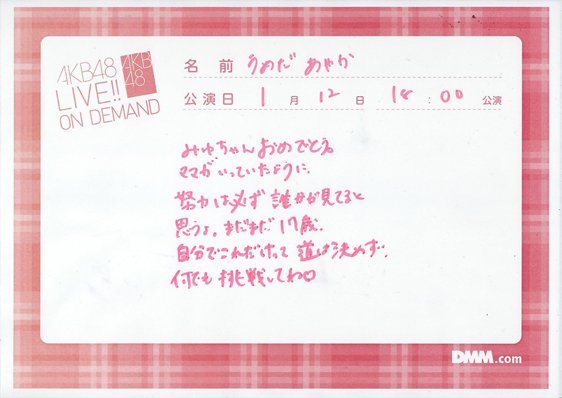 AKB48
LIVE!!
ON DEMAND
AKB
48
名 前 うめだ あやか
公演日 1 月 12 日 18:00 公演
みゆちゃんおめでとう。
ママがいっていたように、
努力は必ず誰かが見てると
思うよ。まだまだ17歳。
自分でこれだけって道は決めず、
何でも挑戦してね♡
DMM.com